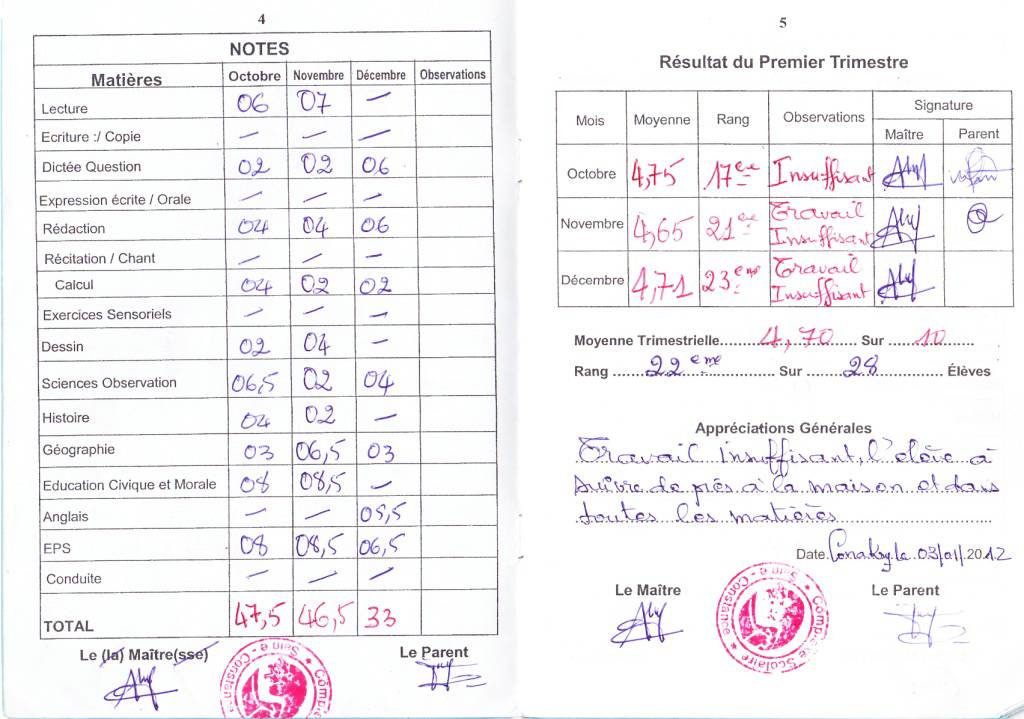 4
NOTES
Matières Octobre Novembre Décembre Observations
Lecture 06 07 —
Ecriture :/ Copie — — —
Dictée Question 02 02 06
Expression écrite / Orale — — —
Rédaction 04 04 06
Récitation / Chant — — —
Calcul 04 02 02
Exercices Sensoriels — — —
Dessin 02 04 —
Sciences Observation 06,5 02 04
Histoire 04 02 —
Géographie 03 06,5 03
Education Civique et Morale 08 08,5 —
Anglais — — 05,5
EPS 08 08,5 06,5
Conduite — — —
TOTAL 47,5 46,5 33
Le (la) Maître(sse) Le Parent
5
Résultat du Premier Trimestre
Mois Moyenne Rang Observations Signature
Maître Parent
Octobre 4,75 17ème Insuffisant
Novembre 4,65 21ème Travail
Insuffisant
Décembre 4,71 23ème Travail
Insuffisant
Moyenne Trimestrielle 4,70 Sur 10
Rang 22ème Sur 28 Élèves
Appréciations Générales
Travail insuffisant, l'élève à
suivre de près à la maison et dans
toutes les matières
Date Conakry le 03/01/2012
Le Maître Le Parent
Complexe Scolaire